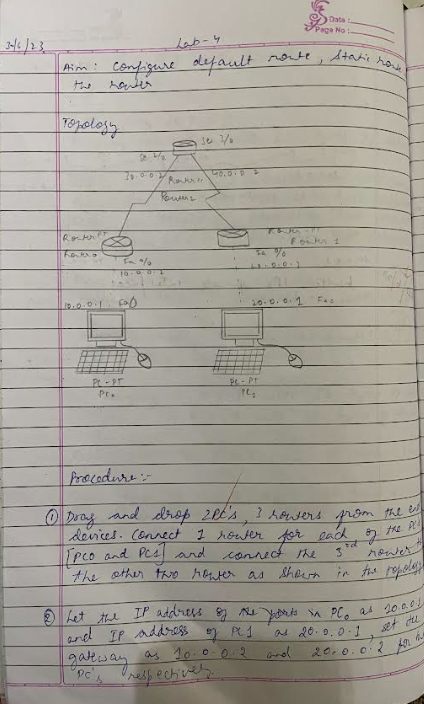 Date :
Page No :
Lab - 4
Aim : Configure default route , Static route
the router
Topology
Se 3/0
Se 2/0
30.0.0.2
40.0.0.2
Router
Router2
Router-PT
Router0
Router-PT
Router 1
Fa 0/0
10.0.0.2
Fa 0/0
10.0.0.1
Fa0
20.0.0.1
Fa0
PC - PT
PC0
PC - PT
PC1
Procedure :-
① Drag and drop 2PC's, 3 routers from the
devices. Connect 1 router for each of the PC
[PC0 and PC1] and connect the 3rd router
the other two router as shown in the topology
② Let the IP address of the ports in PC0 as 10.0.0.1
and IP address of PC1 as 20.0.0.1, set the
gateway as 10.0.0.2 and 20.0.0.2 for
PC's respectively.